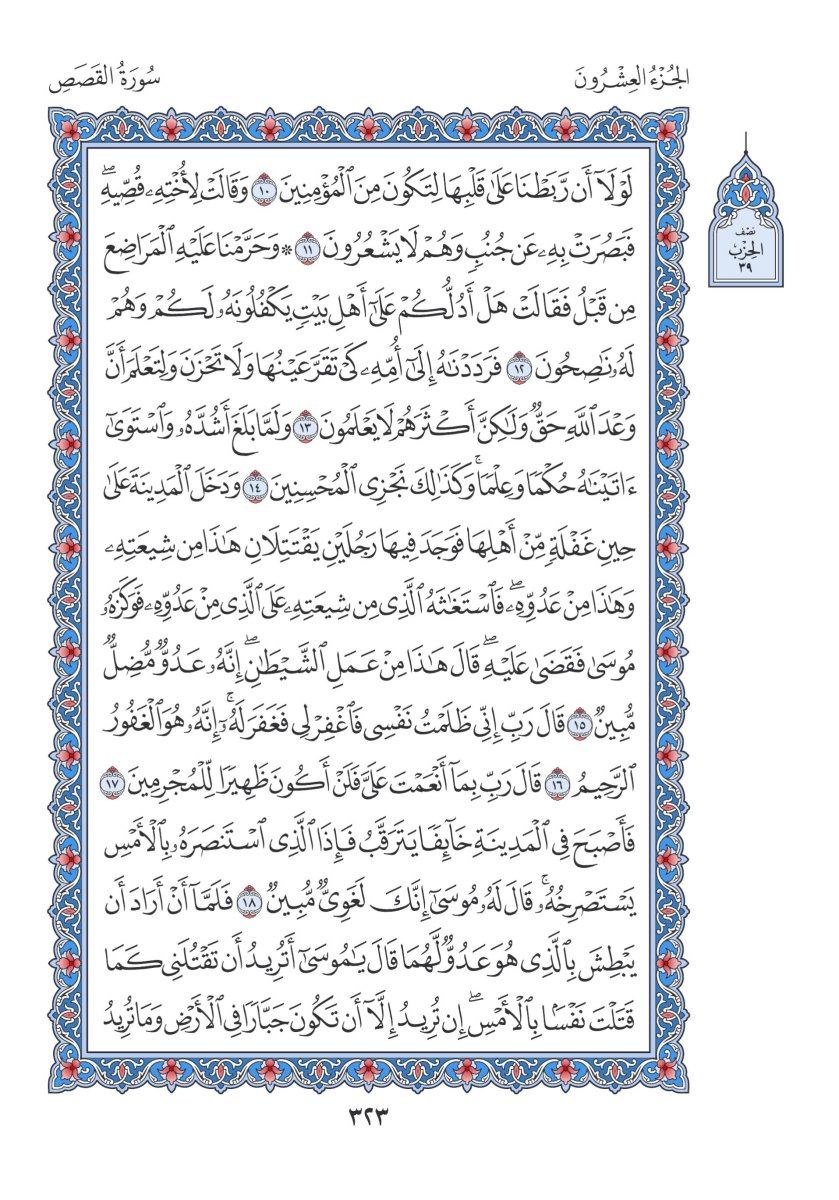 الجُزْءُ العِشْرُونَ
سُورَةُ القَصَصِ
لَوْلَآ أَن رَّبَطْنَا عَلَىٰ قَلْبِهَا لِتَكُونَ مِنَ ٱلْمُؤْمِنِينَ ١٠ وَقَالَتْ لِأُخْتِهِۦ قُصِّيهِۖ
فَبَصُرَتْ بِهِۦ عَن جُنُبٖ وَهُمْ لَا يَشْعُرُونَ ١١ ۞ وَحَرَّمْنَا عَلَيْهِ ٱلْمَرَاضِعَ
مِن قَبْلُ فَقَالَتْ هَلْ أَدُلُّكُمْ عَلَىٰٓ أَهْلِ بَيْتٖ يَكْفُلُونَهُۥ لَكُمْ وَهُمْ
لَهُۥ نَٰصِحُونَ ١٢ فَرَدَدْنَٰهُ إِلَىٰٓ أُمِّهِۦ كَىْ تَقَرَّ عَيْنُهَا وَلَا تَحْزَنَ وَلِتَعْلَمَ أَنَّ
وَعْدَ ٱللَّهِ حَقّٞ وَلَٰكِنَّ أَكْثَرَهُمْ لَا يَعْلَمُونَ ١٣ وَلَمَّا بَلَغَ أَشُدَّهُۥ وَٱسْتَوَىٰٓ
ءَاتَيْنَٰهُ حُكْمٗا وَعِلْمٗاۚ وَكَذَٰلِكَ نَجْزِى ٱلْمُحْسِنِينَ ١٤ وَدَخَلَ ٱلْمَدِينَةَ عَلَىٰ
حِينِ غَفْلَةٖ مِّنْ أَهْلِهَا فَوَجَدَ فِيهَا رَجُلَيْنِ يَقْتَتِلَانِ هَٰذَا مِن شِيعَتِهِۦ
وَهَٰذَا مِنْ عَدُوِّهِۦۖ فَٱسْتَغَٰثَهُ ٱلَّذِى مِن شِيعَتِهِۦ عَلَى ٱلَّذِى مِنْ عَدُوِّهِۦ فَوَكَزَهُۥ
مُوسَىٰ فَقَضَىٰ عَلَيْهِۖ قَالَ هَٰذَا مِنْ عَمَلِ ٱلشَّيْطَٰنِۖ إِنَّهُۥ عَدُوّٞ مُّضِلّٞ
مُّبِينٞ ١٥ قَالَ رَبِّ إِنِّى ظَلَمْتُ نَفْسِى فَٱغْفِرْ لِى فَغَفَرَ لَهُۥٓۚ إِنَّهُۥ هُوَ ٱلْغَفُورُ
ٱلرَّحِيمُ ١٦ قَالَ رَبِّ بِمَآ أَنْعَمْتَ عَلَىَّ فَلَنْ أَكُونَ ظَهِيرٗا لِّلْمُجْرِمِينَ ١٧
فَأَصْبَحَ فِى ٱلْمَدِينَةِ خَآئِفٗا يَتَرَقَّبُ فَإِذَا ٱلَّذِى ٱسْتَنصَرَهُۥ بِٱلْأَمْسِ
يَسْتَصْرِخُهُۥۚ قَالَ لَهُۥ مُوسَىٰٓ إِنَّكَ لَغَوِىّٞ مُّبِينٞ ١٨ فَلَمَّآ أَنْ أَرَادَ أَن
يَبْطِشَ بِٱلَّذِى هُوَ عَدُوّٞ لَّهُمَا قَالَ يَٰمُوسَىٰٓ أَتُرِيدُ أَن تَقْتُلَنِى كَمَا
قَتَلْتَ نَفْسَۢا بِٱلْأَمْسِۖ إِن تُرِيدُ إِلَّآ أَن تَكُونَ جَبَّارٗا فِى ٱلْأَرْضِ وَمَا تُرِيدُ
نصْف
الحِزْب
٣٩
٣٢٣